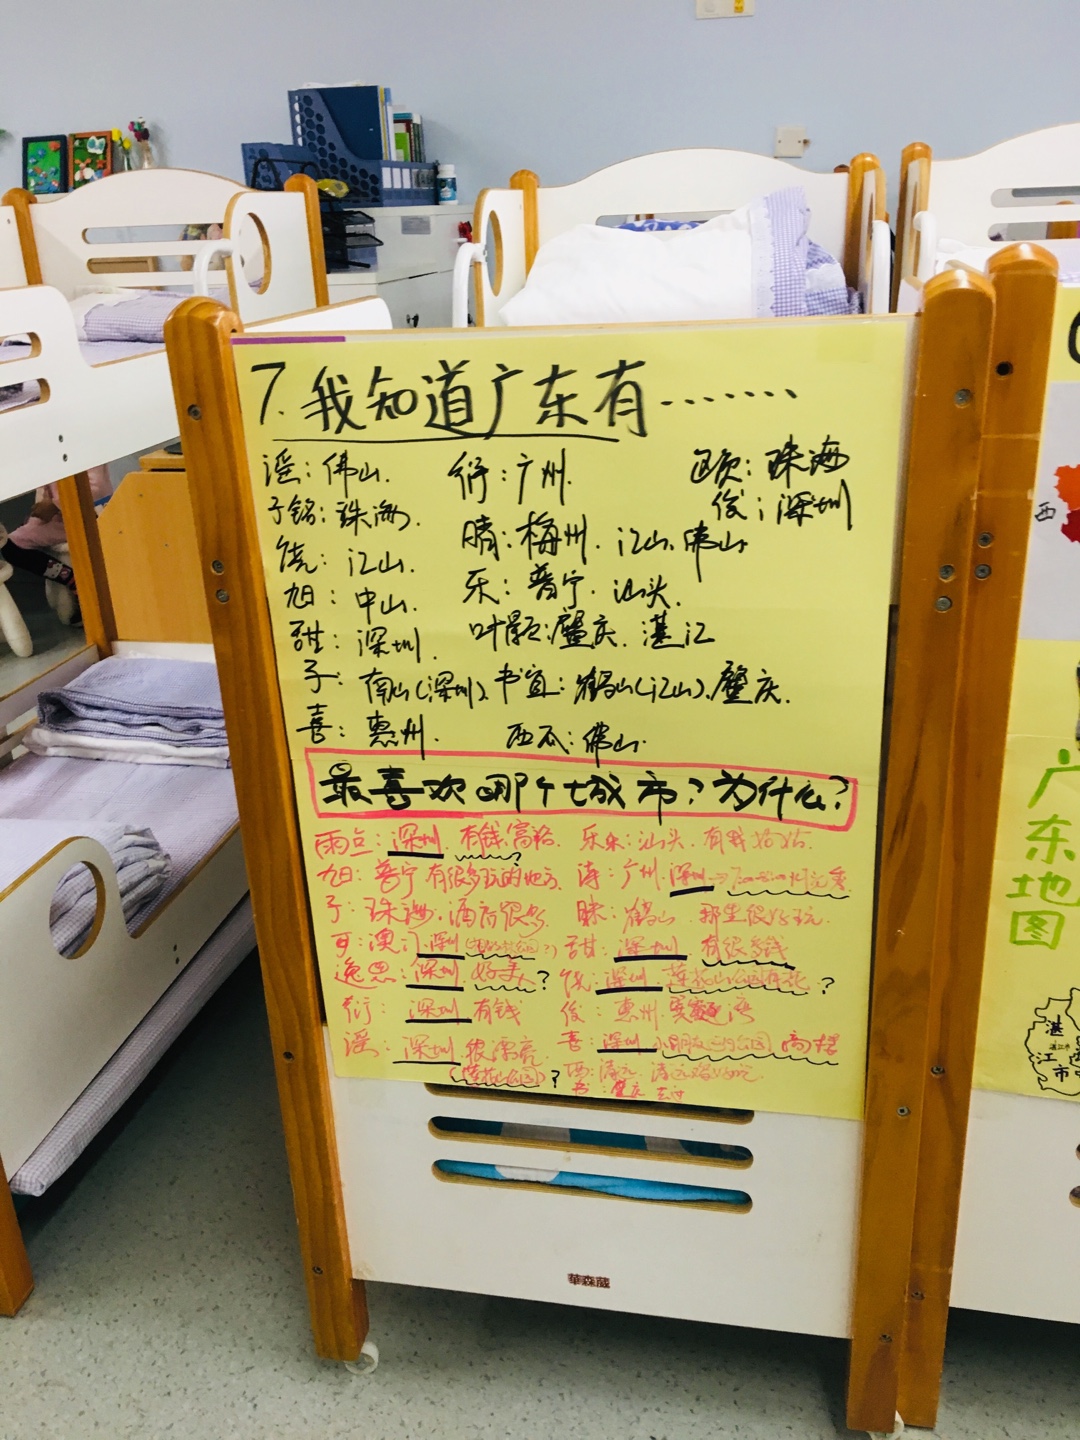 7. 我知道广东有.......
谣：佛山. 衍：广州. 欧：珠海
子铭：珠海. 俊：深圳
饶：江山. 晴：梅州. 江山. 佛山
旭：中山. 乐：普宁. 汕头.
甜：深圳. 叶影：肇庆. 湛江
子：南山(深圳). 书宜：鹤山(江山). 肇庆.
喜：惠州. 西瓜：佛山.
最喜欢哪个城市？为什么？
雨立：深圳. 有钱富裕. 乐乐：汕头.
旭：普宁 有很多玩的地方. 涛：广州. 深圳→
子：珠海. 酒店很多 鹤山 那里很好玩.
可：澳门. 深圳 甜：深圳 有很多钱
逸思：深圳. 好美？ 饶：深圳. 莲花山公园有花？
衍：深圳 有钱 俊：惠州.
谣：深圳. 很漂亮 喜：深圳 高楼
(莲花山公园)？ 西：清远. 清远鸡好吃.
书：肇庆
華森葳
西
广东地图
湛
江
市